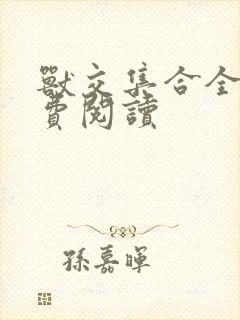 獸交集合全
費閱讀
孫嘉暉